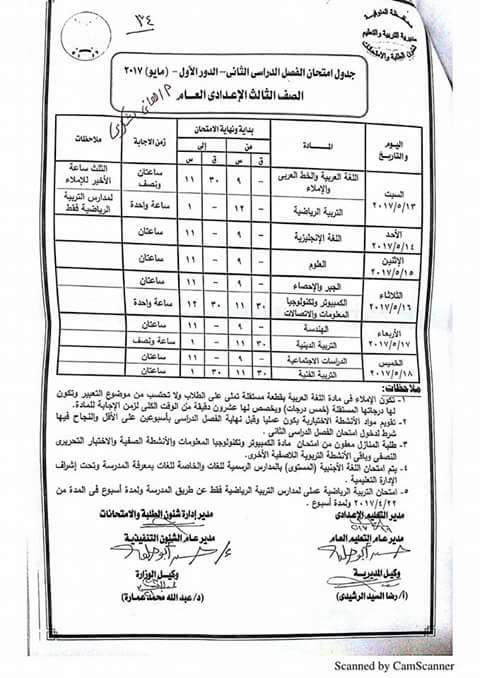 محافظة المنوفية
مديرية التربية والتعليم
شئون الطلبة والامتحانات
٣٤
جدول امتحان الفصل الدراسى الثانى - الدور الأول - (مايو) ٢٠١٧
الصف الثالث الإعدادى العام
اليوم والتاريخ المـــادة بداية ونهاية الامتحان زمن الاجابة ملاحظات
من إلى
ق س ق س
السبت ٢٠١٧/٥/١٣ اللغة العربية والخط العربى والإملاء - ٩ ٣٠ ١١ ساعتان ونصف الثلث ساعة الأخير للإملاء
التربية الرياضية - ١٢ - ١ ساعة واحدة لمدارس التربية الرياضية فقط
الأحد ٢٠١٧/٥/١٤ اللغة الإنجليزية - ٩ - ١١ ساعتان
الإثنين ٢٠١٧/٥/١٥ العلوم - ٩ - ١١ ساعتان
الثلاثاء ٢٠١٧/٥/١٦ الجبر والإحصاء - ٩ - ١١ ساعتان
الكمبيوتر وتكنولوجيا المعلومات والاتصالات ٣٠ ١١ ٣٠ ١٢ ساعة واحدة
الأربعاء ٢٠١٧/٥/١٧ الهندسة - ٩ - ١١ ساعتان
التربية الدينية ٣٠ ١١ - ١ ساعة ونصف
الخميس ٢٠١٧/٥/١٨ الدراسات الاجتماعية - ٩ - ١١ ساعتان
التربية الفنية ٣٠ ١١ ٣٠ ١ ساعتان
ملاحظات:
١- تكون الإملاء فى مادة اللغة العربية بقطعة مستقلة تملى على الطلاب ولا تحتسب من موضوع التعبير وتكون
لها درجاتها المستقلة (خمس درجات) ويخصص لها عشرون دقيقة من الوقت الكلى لزمن الإجابة للمادة.
٢- تقويم مواد الأنشطة الاختيارية يكون عمليا وقبل نهاية الفصل الدراسى بأسبوعين على الأقل والنجاح فيها
شرط لدخول امتحان الفصل الدراسى الثانى .
٣- طلبة المنازل معفون من امتحان مادة الكمبيوتر وتكنولوجيا المعلومات والأنشطة الصفية والاختبار التحريرى
النصفى وباقى الأنشطة التربوية اللاصفية الأخرى.
٤- يتم امتحان اللغة الأجنبية (المستوى) بالمدارس الرسمية للغات والخاصة للغات بمعرفة المدرسة وتحت إشراف
الإدارة التعليمية .
٥- امتحان التربية الرياضية عملى لمدارس التربية الرياضية فقط عن طريق المدرسة ولمدة أسبوع فى المدة من
٢٠١٧/٤/٢٢ ولمدة أسبوع .
مدير التعليم الإعدادى مدير إدارة شئون الطلبة والامتحانات
مدير عام التعليم العام مدير عام الشئون التنفيذية
وكيل المديرية وكيل الوزارة
(أ/ رضا السيد الرشيدى) (د/ عبد الله محمد عمارة)
Scanned by CamScanner